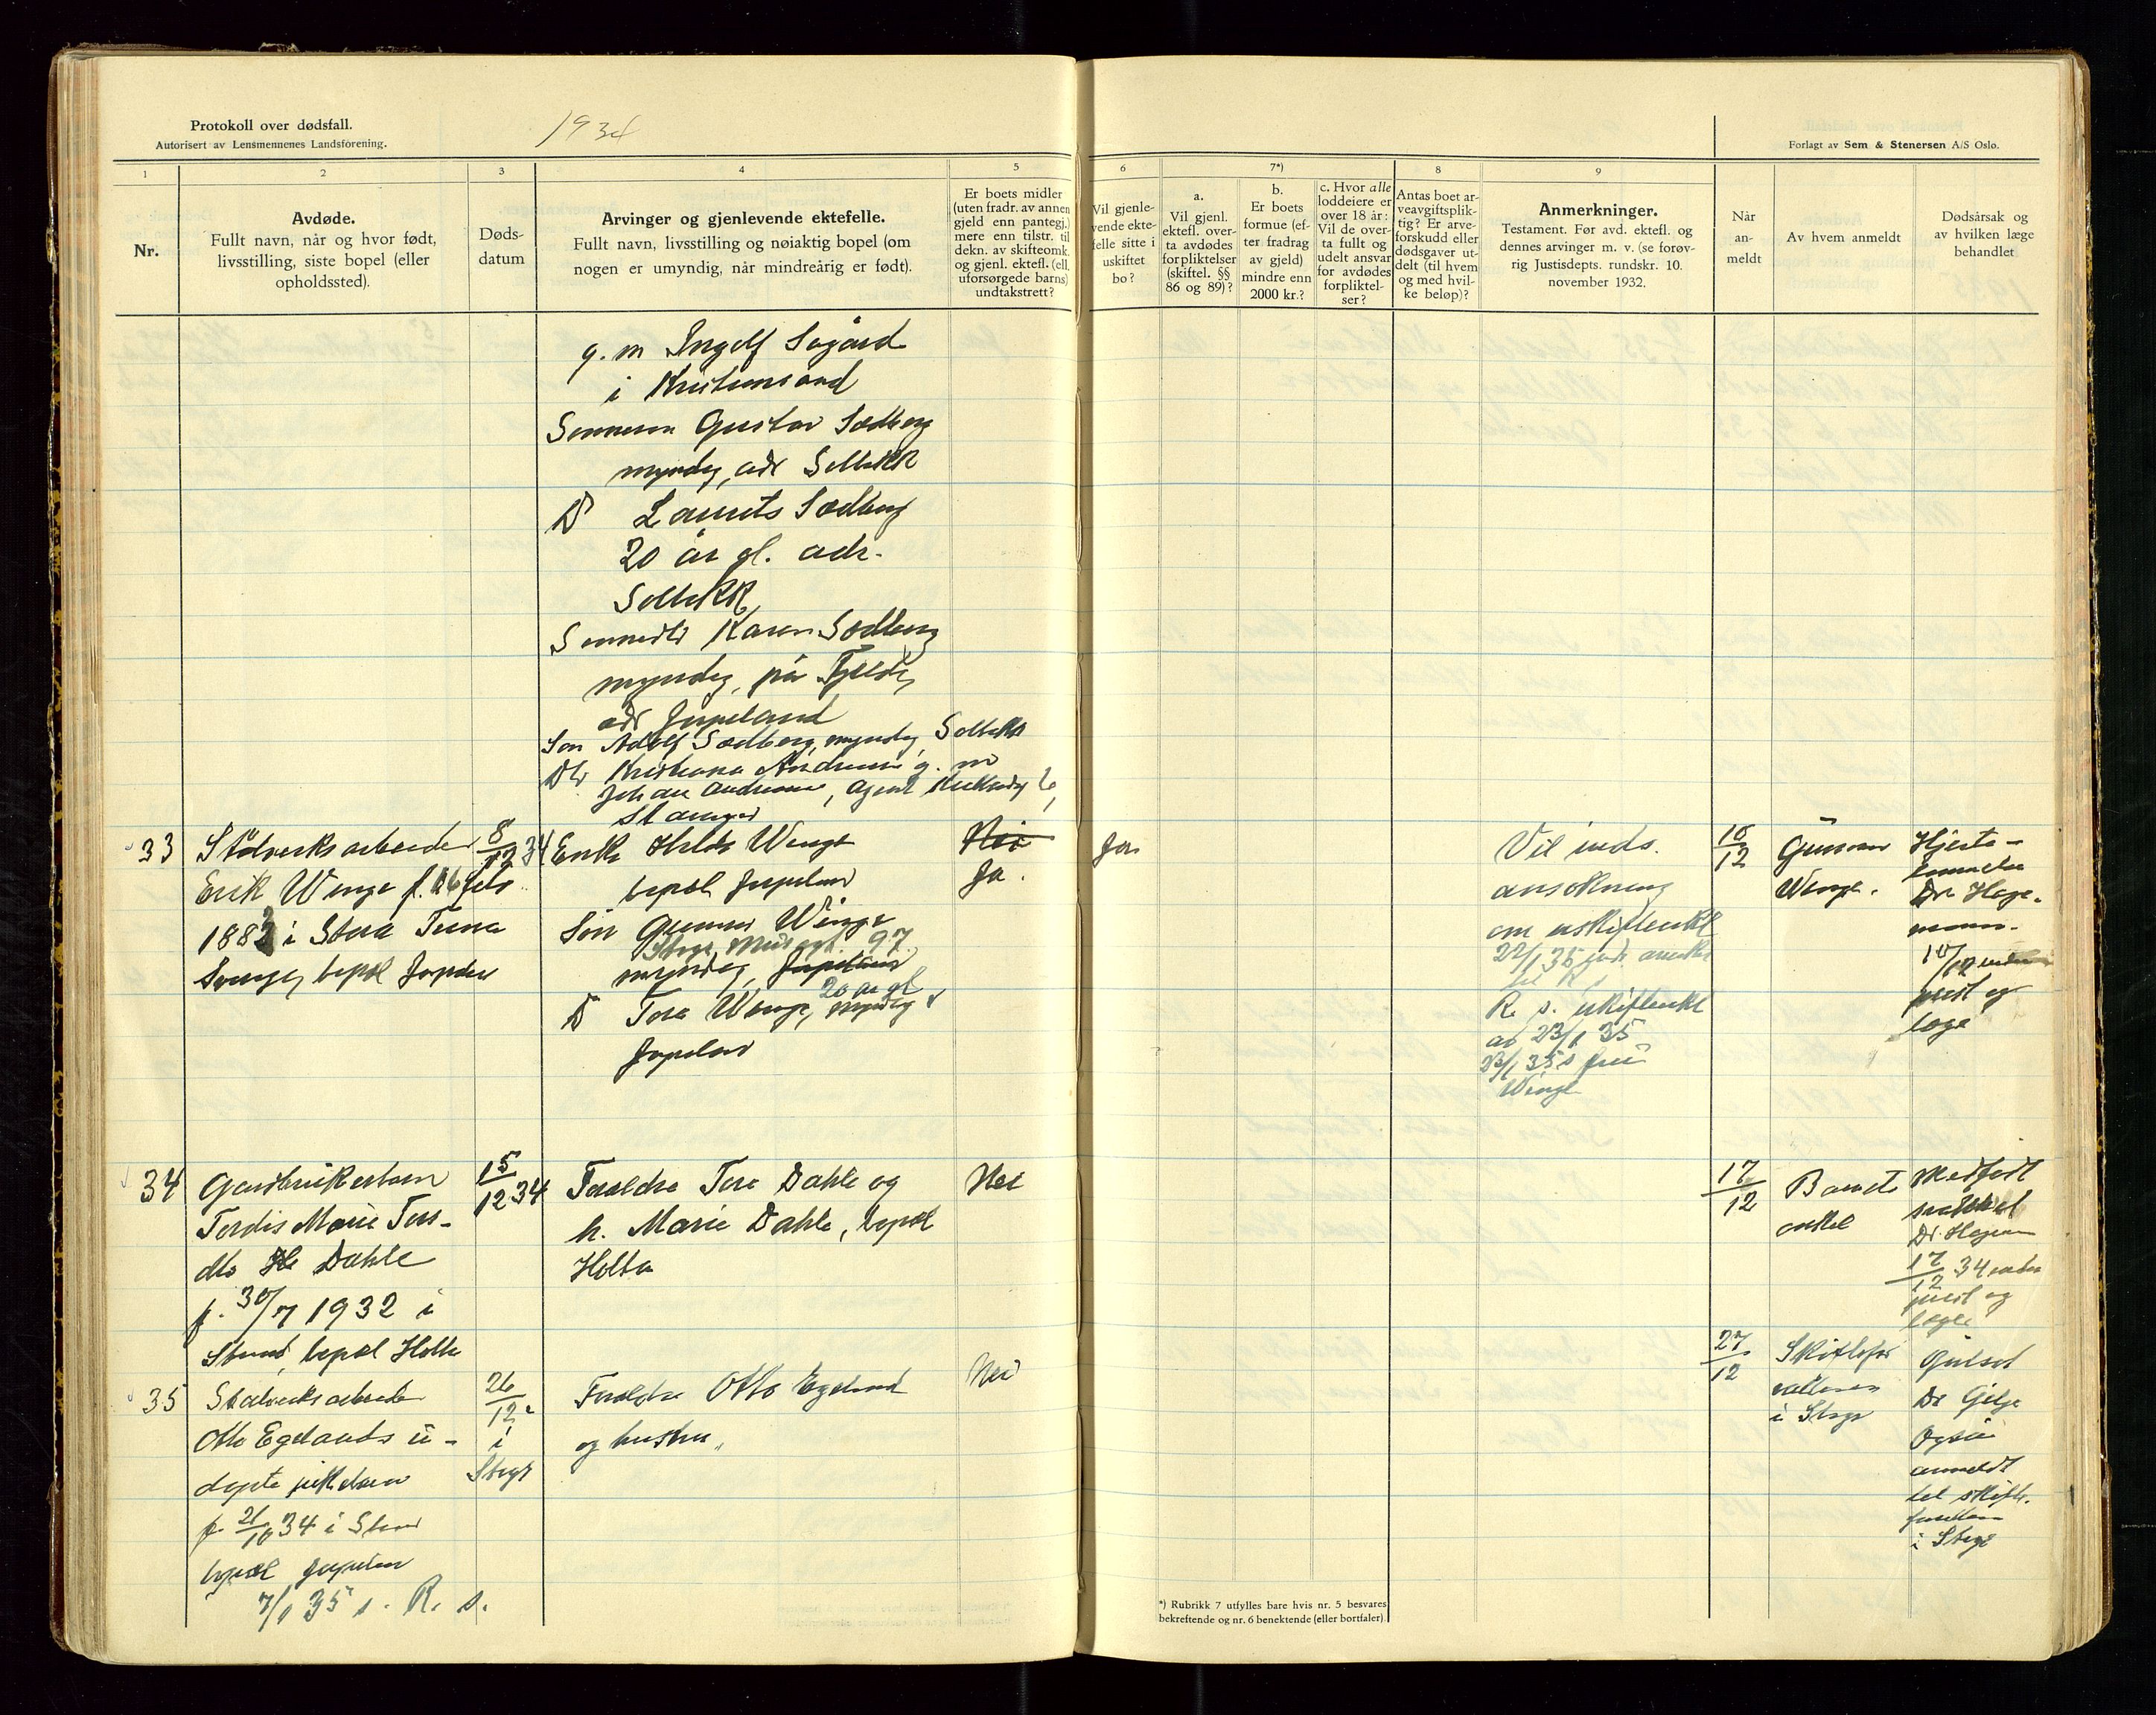 Protokoll over dødsfall.
Autorisert av Lensmennenes Landsforening.
1934
Forlagt av Sem & Stenersen A/S Oslo.
1
2
3
4
5
6
7*)
8
9
Nr.
Avdøde.
Fullt navn, når og hvor født,
livsstilling, siste bopel (eller
opholdssted).
Døds-
datum
Arvinger og gjenlevende ektefelle.
Fullt navn, livsstilling og nøiaktig bopel (om
nogen er umyndig, når mindreårig er født).
Er boets midler
(uten fradr. av annen
gjeld enn pantegj.)
mere enn tilstr. til
dekn. av skifteomk.
og gjenl. ektefl. (ell.
uforsørgede barns)
undtakstrett?
Vil gjenle-
vende ekte-
felle sitte i
uskiftet
bo?
a.
Vil gjenl.
ektefl. over-
ta avdødes
forpliktelser
(skiftel. §§
86 og 89)?
b.
Er boets
formue (ef-
ter fradrag
av gjeld)
mindre enn
2000 kr.?
c. Hvor alle
loddeiere er
over 18 år:
Vil de over-
ta fullt og
udelt ansvar
for avdødes
forpliktel-
ser?
Antas boet ar-
veavgiftsplik-
tig? Er arve-
forskudd eller
dødsgaver ut-
delt (til hvem
og med hvil-
ke beløp)?
Anmerkninger.
Testament. Før avd. ektefl. og
dennes arvinger m. v. (se forøv-
rig Justisdepts. rundskr. 10.
november 1932.
Når
an-
meldt
Av hvem anmeldt
Dødsårsak og
av hvilken læge
behandlet
g. m Ingolf Søgård
i Kristiansand
Sønnesøn Gustav Sødberg
myndig, adr Solbakk
D Laurits Sødberg
20 år gl. adr.
Solbakk
Sønnedtr Karen Sødberg
myndig, på
adr Jørpeland
Søn Adolf Sødberg, myndig, Solbakk
Dtr Kristiana Andersen g. m
Johan Andersen, Agent
Stavanger
33
Stålverksarbeider
Erik Wenge f. 16 feb.
1882 i Stora Tuna
Sverige, bopæl Jørpeland
8/12 34
Enke Hilda Wenge
bopæl Jørpeland
Søn Gunnar Wenge
97
myndig, Jørpeland
20 år gl
D Tora Wenge, myndig
Jørpeland
Nei
Ja.
Ja
Vil inds.
ansøkning
om uskiftenkt
22/1 35 inds. ansøkn
til R
R. s. uskiftenkt
av 23/1 35
23/1 35 s fru
Wenge
18/12
Gunnar
Wenge.
Hjerte-
lammelse
Dr. Hage-
mann.
18/12
prest og
læge
34
Gårdbrukerbarn
Tordis Marie Tors-
dtr Dahle
f. 30/7 1932 i
Strand, bopæl Holta
15/12 34
Foreldre Tore Dahle og
h. Marie Dahle, bopæl
Holta
Nei
17/12
Barnets
onkel
Medfødt
svakhet
Dr. Hagem
17/12 34
prest og
læge
35
Stålverksarbeider
Otto Egelands u-
døpte pikebarn
f. 21/10 34 i Strand
bopæl Jørpeland
7/1 35 s. R. s.
26/12
i
Stvgr
Foreldre Otto Egeland
og hustru
Nei
27/12
Skiftefor
valteren
i Stvgr
Gulsot
Dr Gilje
Også
anmeldt
til skifte-
forvalteren
i Stvgr
*) Rubrikk 7 utfylles bare hvis nr. 5 besvares
bekreftende og nr. 6 benektende (eller bortfaler).